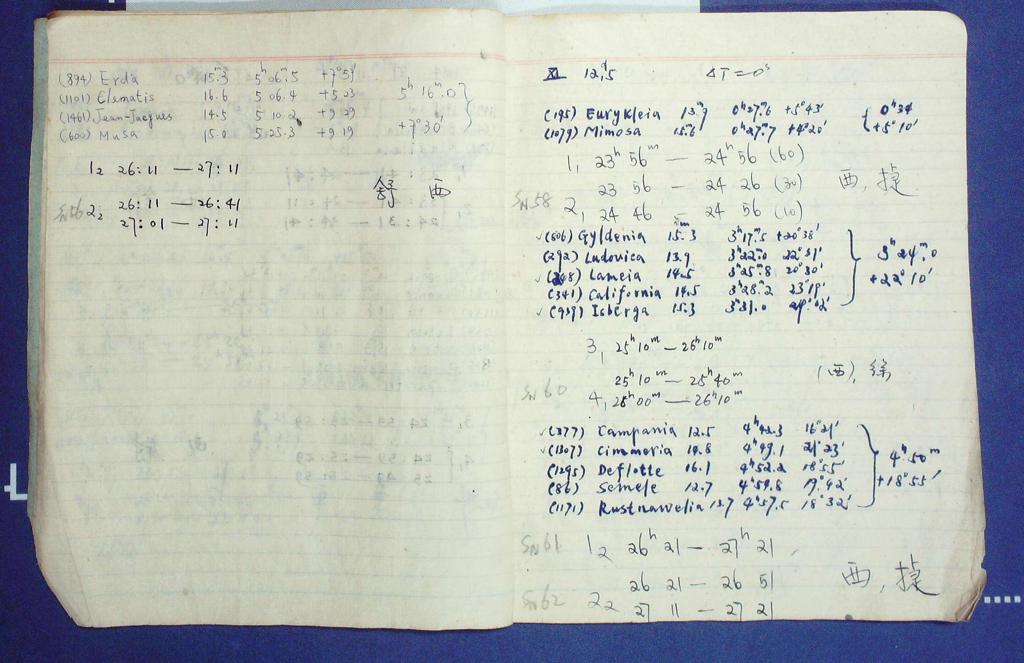 (894) Erda 15.3ᵐ 5ʰ06ᵐ.5 +7°51′
(1101) Clematis 16.6 5 06.4 +5.23 5ʰ16ᵐ.0
(1461) Jean-Jacques 14.5 5 10.2 +9.29
(600) Musa 15.0 5 25.3 +9.19 +7°30′
1₂ 26:11 — 27:11
舒 西
SN56 2₂ 26:11 — 26:41
27:01 — 27:11
XI 12.ᵈ5 ΔT=0ˢ
(195) Eurykleia 13.ᵐ9 0ʰ27ᵐ.6 +5°43′ 0ʰ34
(1079) Mimosa 15.6 0ʰ27ᵐ.7 +4°20′ +5°10′
1, 23ʰ 56ᵐ — 24ʰ 56 (60)
23 56 — 24 26 (30) 西, 捷
SN58 2, 24 46 — 24 56 (10)
(806) Gyldenia 15.ᵐ3 3ʰ17ᵐ.5 +20°38′
(292) Ludovica 13.9 3ʰ22ᵐ.0 22°51′ 3ʰ24ᵐ.0
(248) Lameia 14.5 3ʰ25ᵐ.8 20°30′ +22°10′
(341) California 14.5 3ʰ28ᵐ.2 23°19′
(939) Isberga 15.3 3ʰ31.0 24°02′
3, 25ʰ10ᵐ — 26ʰ10ᵐ
25ʰ10ᵐ — 25ʰ40ᵐ (西), 徐
SN60 4, 26ʰ00ᵐ — 26ʰ10ᵐ
(377) Campania 12.5 4ʰ42.3 16°21′
(1307) Cimmeria 14.8 4ʰ49.1 21°23′ 4ʰ50ᵐ
(1295) Deflotte 16.1 4ʰ52.2 18°55′ +18°55′
(86) Semele 12.7 4ʰ59.8 19°42′
(1171) Rusthawelia 15.7 4ʰ57.5 18°32′
SN61 1₂ 26ʰ 21 — 27ʰ 21
26 21 — 26 51 西, 捷
SN62 2₂ 27 11 — 27 21